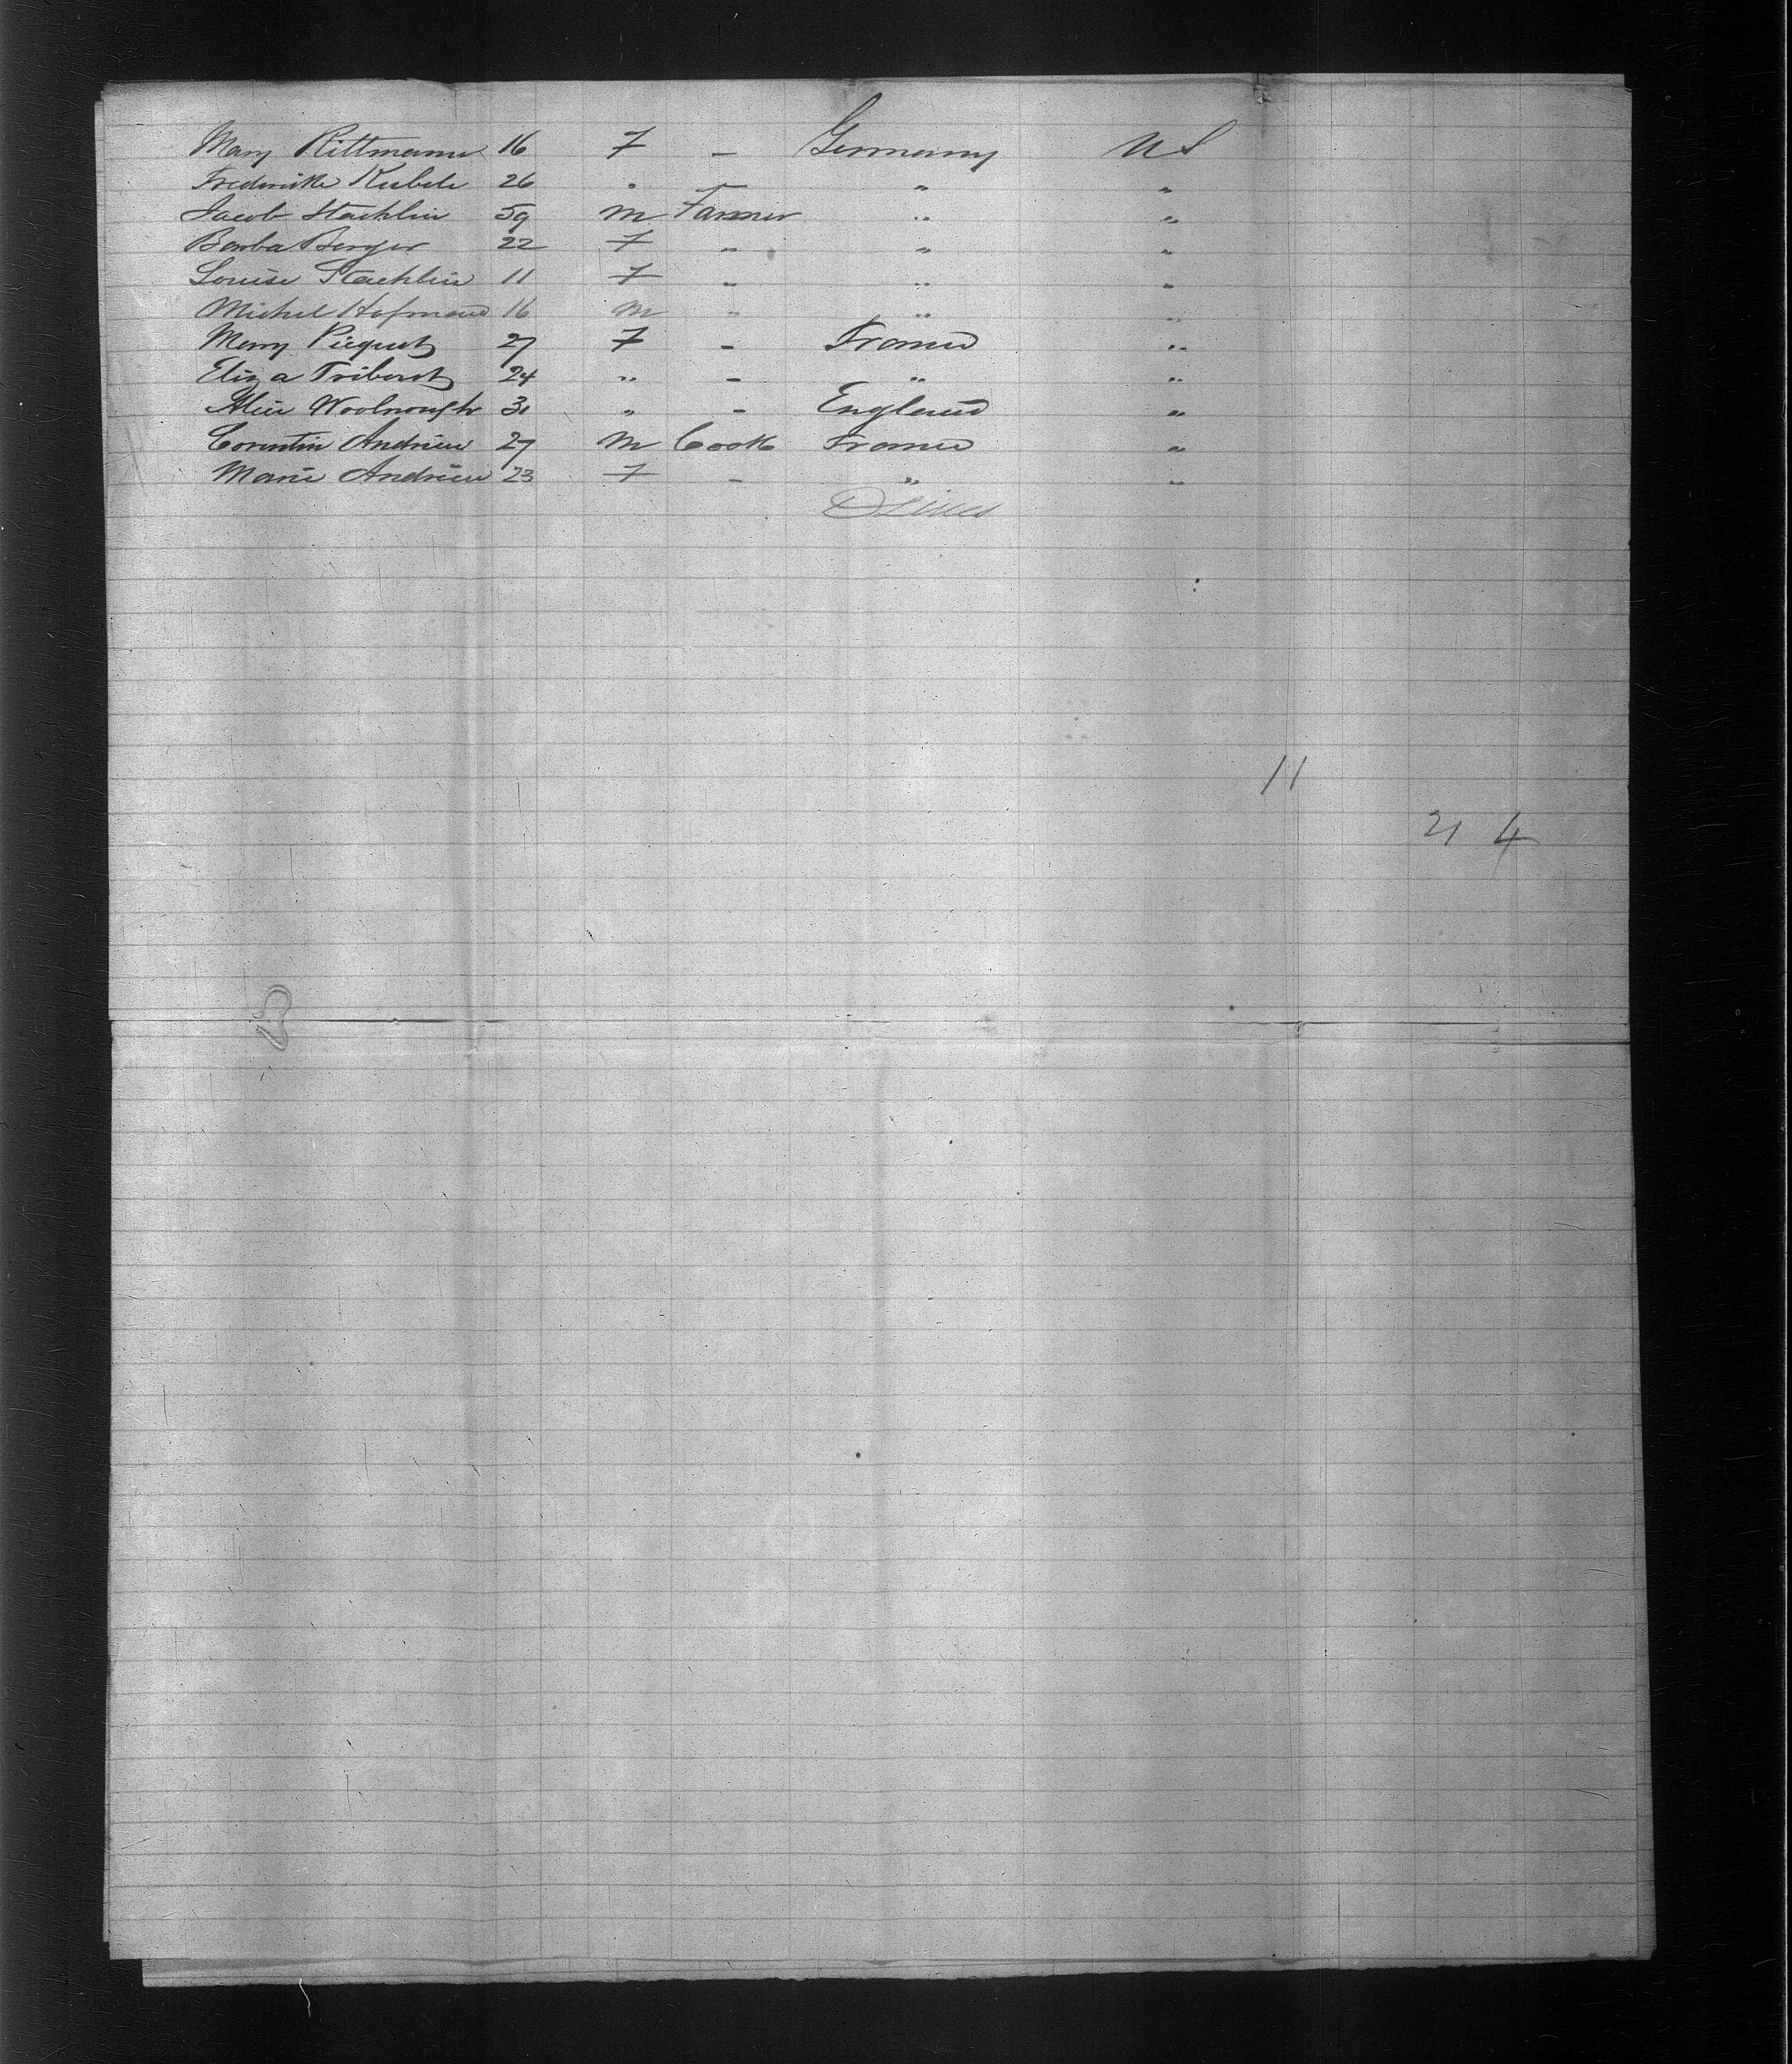 Mary Rittmann 16 F - Germany US
Fredericke Kubele 26 " " "
Jacob Staehlin 59 M Farmer " "
Barba Berger 22 F " " "
Louise Staehlin 11 F " " "
Michel Hofmann 16 M " " "
Mary Piequet 27 F - France "
Eliza Triboust 24 " - " "
Alice Woolnough 31 " - England "
Corentin Andrieu 27 M Cook France "
Marie Andrieu 23 F - " "
11
21 4